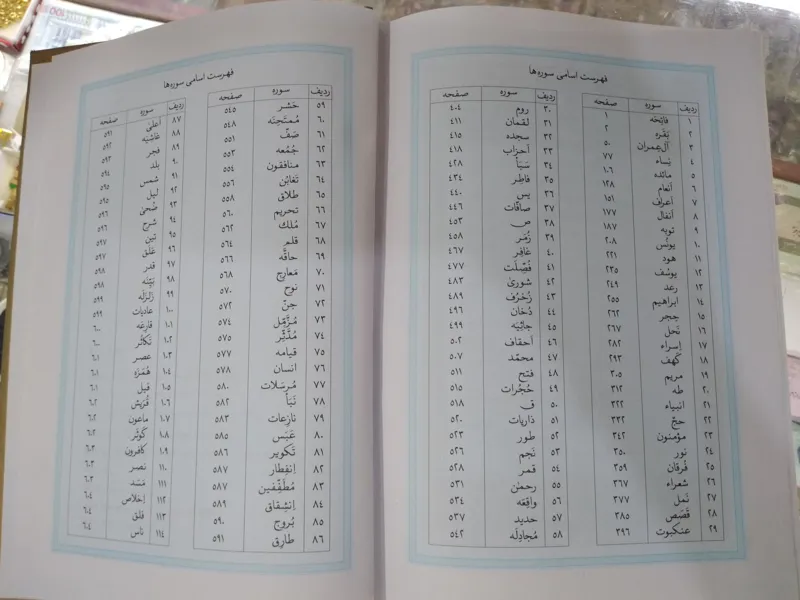 فهرست اسامی سوره‌ها
ردیف سوره صفحه
۱ فاتِحَه ۱
۲ بَقَرِه ۲
۳ آل‌عِمران ۵۰
۴ نِساء ۷۷
۵ مائده ۱۰۶
۶ أنعام ۱۲۸
۷ أعراف ۱۵۱
۸ أنفال ۱۷۷
۹ توبه ۱۸۷
۱۰ یونُس ۲۰۸
۱۱ هود ۲۲۱
۱۲ یوسُف ۲۳۵
۱۳ رعد ۲۴۹
۱۴ ابراهیم ۲۵۵
۱۵ حِجر ۲۶۲
۱۶ نَحل ۲۶۷
۱۷ إسراء ۲۸۲
۱۸ کَهف ۲۹۳
۱۹ مریم ۳۰۵
۲۰ طه ۳۱۲
۲۱ انبیاء ۳۲۲
۲۲ حجّ ۳۳۲
۲۳ مؤمنون ۳۴۲
۲۴ نور ۳۵۰
۲۵ فُرقان ۳۵۹
۲۶ شعراء ۳۶۷
۲۷ نَمل ۳۷۷
۲۸ قَصَص ۳۸۵
۲۹ عنکبوت ۳۹۶
ردیف سوره صفحه
۳۰ روم ۴۰۴
۳۱ لُقمان ۴۱۱
۳۲ سجده ۴۱۵
۳۳ أحزاب ۴۱۸
۳۴ سَبَأ ۴۲۸
۳۵ فاطِر ۴۳۴
۳۶ یس ۴۴۰
۳۷ صافّات ۴۴۶
۳۸ ص ۴۵۳
۳۹ زُمَر ۴۵۸
۴۰ غافِر ۴۶۷
۴۱ فُصِّلَت ۴۷۷
۴۲ شوریٰ ۴۸۳
۴۳ زُخرُف ۴۸۹
۴۴ دُخان ۴۹۶
۴۵ جاثِیَه ۴۹۹
۴۶ أحقاف ۵۰۲
۴۷ محمّد ۵۰۷
۴۸ فتح ۵۱۱
۴۹ حُجُرات ۵۱۵
۵۰ ق ۵۱۸
۵۱ ذاریات ۵۲۰
۵۲ طور ۵۲۳
۵۳ نَجم ۵۲۶
۵۴ قمر ۵۲۸
۵۵ رحمن ۵۳۱
۵۶ واقِعَه ۵۳۴
۵۷ حدید ۵۳۷
۵۸ مُجادِلَه ۵۴۲
فهرست اسامی سوره‌ها
ردیف سوره صفحه
۵۹ حَشر ۵۴۵
۶۰ مُمتَحِنَه ۵۴۸
۶۱ صَفّ ۵۵۱
۶۲ جُمُعه ۵۵۳
۶۳ منافقون ۵۵۴
۶۴ تَغابُن ۵۵۶
۶۵ طلاق ۵۵۸
۶۶ تحریم ۵۶۰
۶۷ مُلک ۵۶۲
۶۸ قلم ۵۶۴
۶۹ حاقَّه ۵۶۶
۷۰ مَعارِج ۵۶۸
۷۱ نوح ۵۷۰
۷۲ جنّ ۵۷۲
۷۳ مُزَّمِّل ۵۷۴
۷۴ مُدَّثِّر ۵۷۵
۷۵ قیامه ۵۷۷
۷۶ انسان ۵۷۸
۷۷ مُرسَلات ۵۸۰
۷۸ نَبَأ ۵۸۲
۷۹ نازِعات ۵۸۳
۸۰ عَبَس ۵۸۵
۸۱ تَکویر ۵۸۶
۸۲ اِنفِطار ۵۸۷
۸۳ مُطَفِّفین ۵۸۷
۸۴ اِنشِقاق ۵۸۹
۸۵ بُروج ۵۹۰
۸۶ طارِق ۵۹۱
ردیف سوره صفحه
۸۷ أعلیٰ ۵۹۱
۸۸ غاشیَه ۵۹۲
۸۹ فَجر ۵۹۳
۹۰ بلد ۵۹۴
۹۱ شمس ۵۹۵
۹۲ لَیل ۵۹۵
۹۳ ضُحیٰ ۵۹۶
۹۴ شرح ۵۹۶
۹۵ تین ۵۹۷
۹۶ عَلَق ۵۹۷
۹۷ قدر ۵۹۸
۹۸ بَیِّنَه ۵۹۸
۹۹ زَلزَلَه ۵۹۹
۱۰۰ عادیات ۵۹۹
۱۰۱ قارِعَه ۶۰۰
۱۰۲ تَکاثُر ۶۰۰
۱۰۳ عصر ۶۰۱
۱۰۴ هُمَزَه ۶۰۱
۱۰۵ فیل ۶۰۱
۱۰۶ قُرَیش ۶۰۲
۱۰۷ ماعون ۶۰۲
۱۰۸ کَوثَر ۶۰۲
۱۰۹ کافرون ۶۰۳
۱۱۰ نصر ۶۰۳
۱۱۱ مَسَد ۶۰۳
۱۱۲ إخلاص ۶۰۴
۱۱۳ فلق ۶۰۴
۱۱۴ ناس ۶۰۴